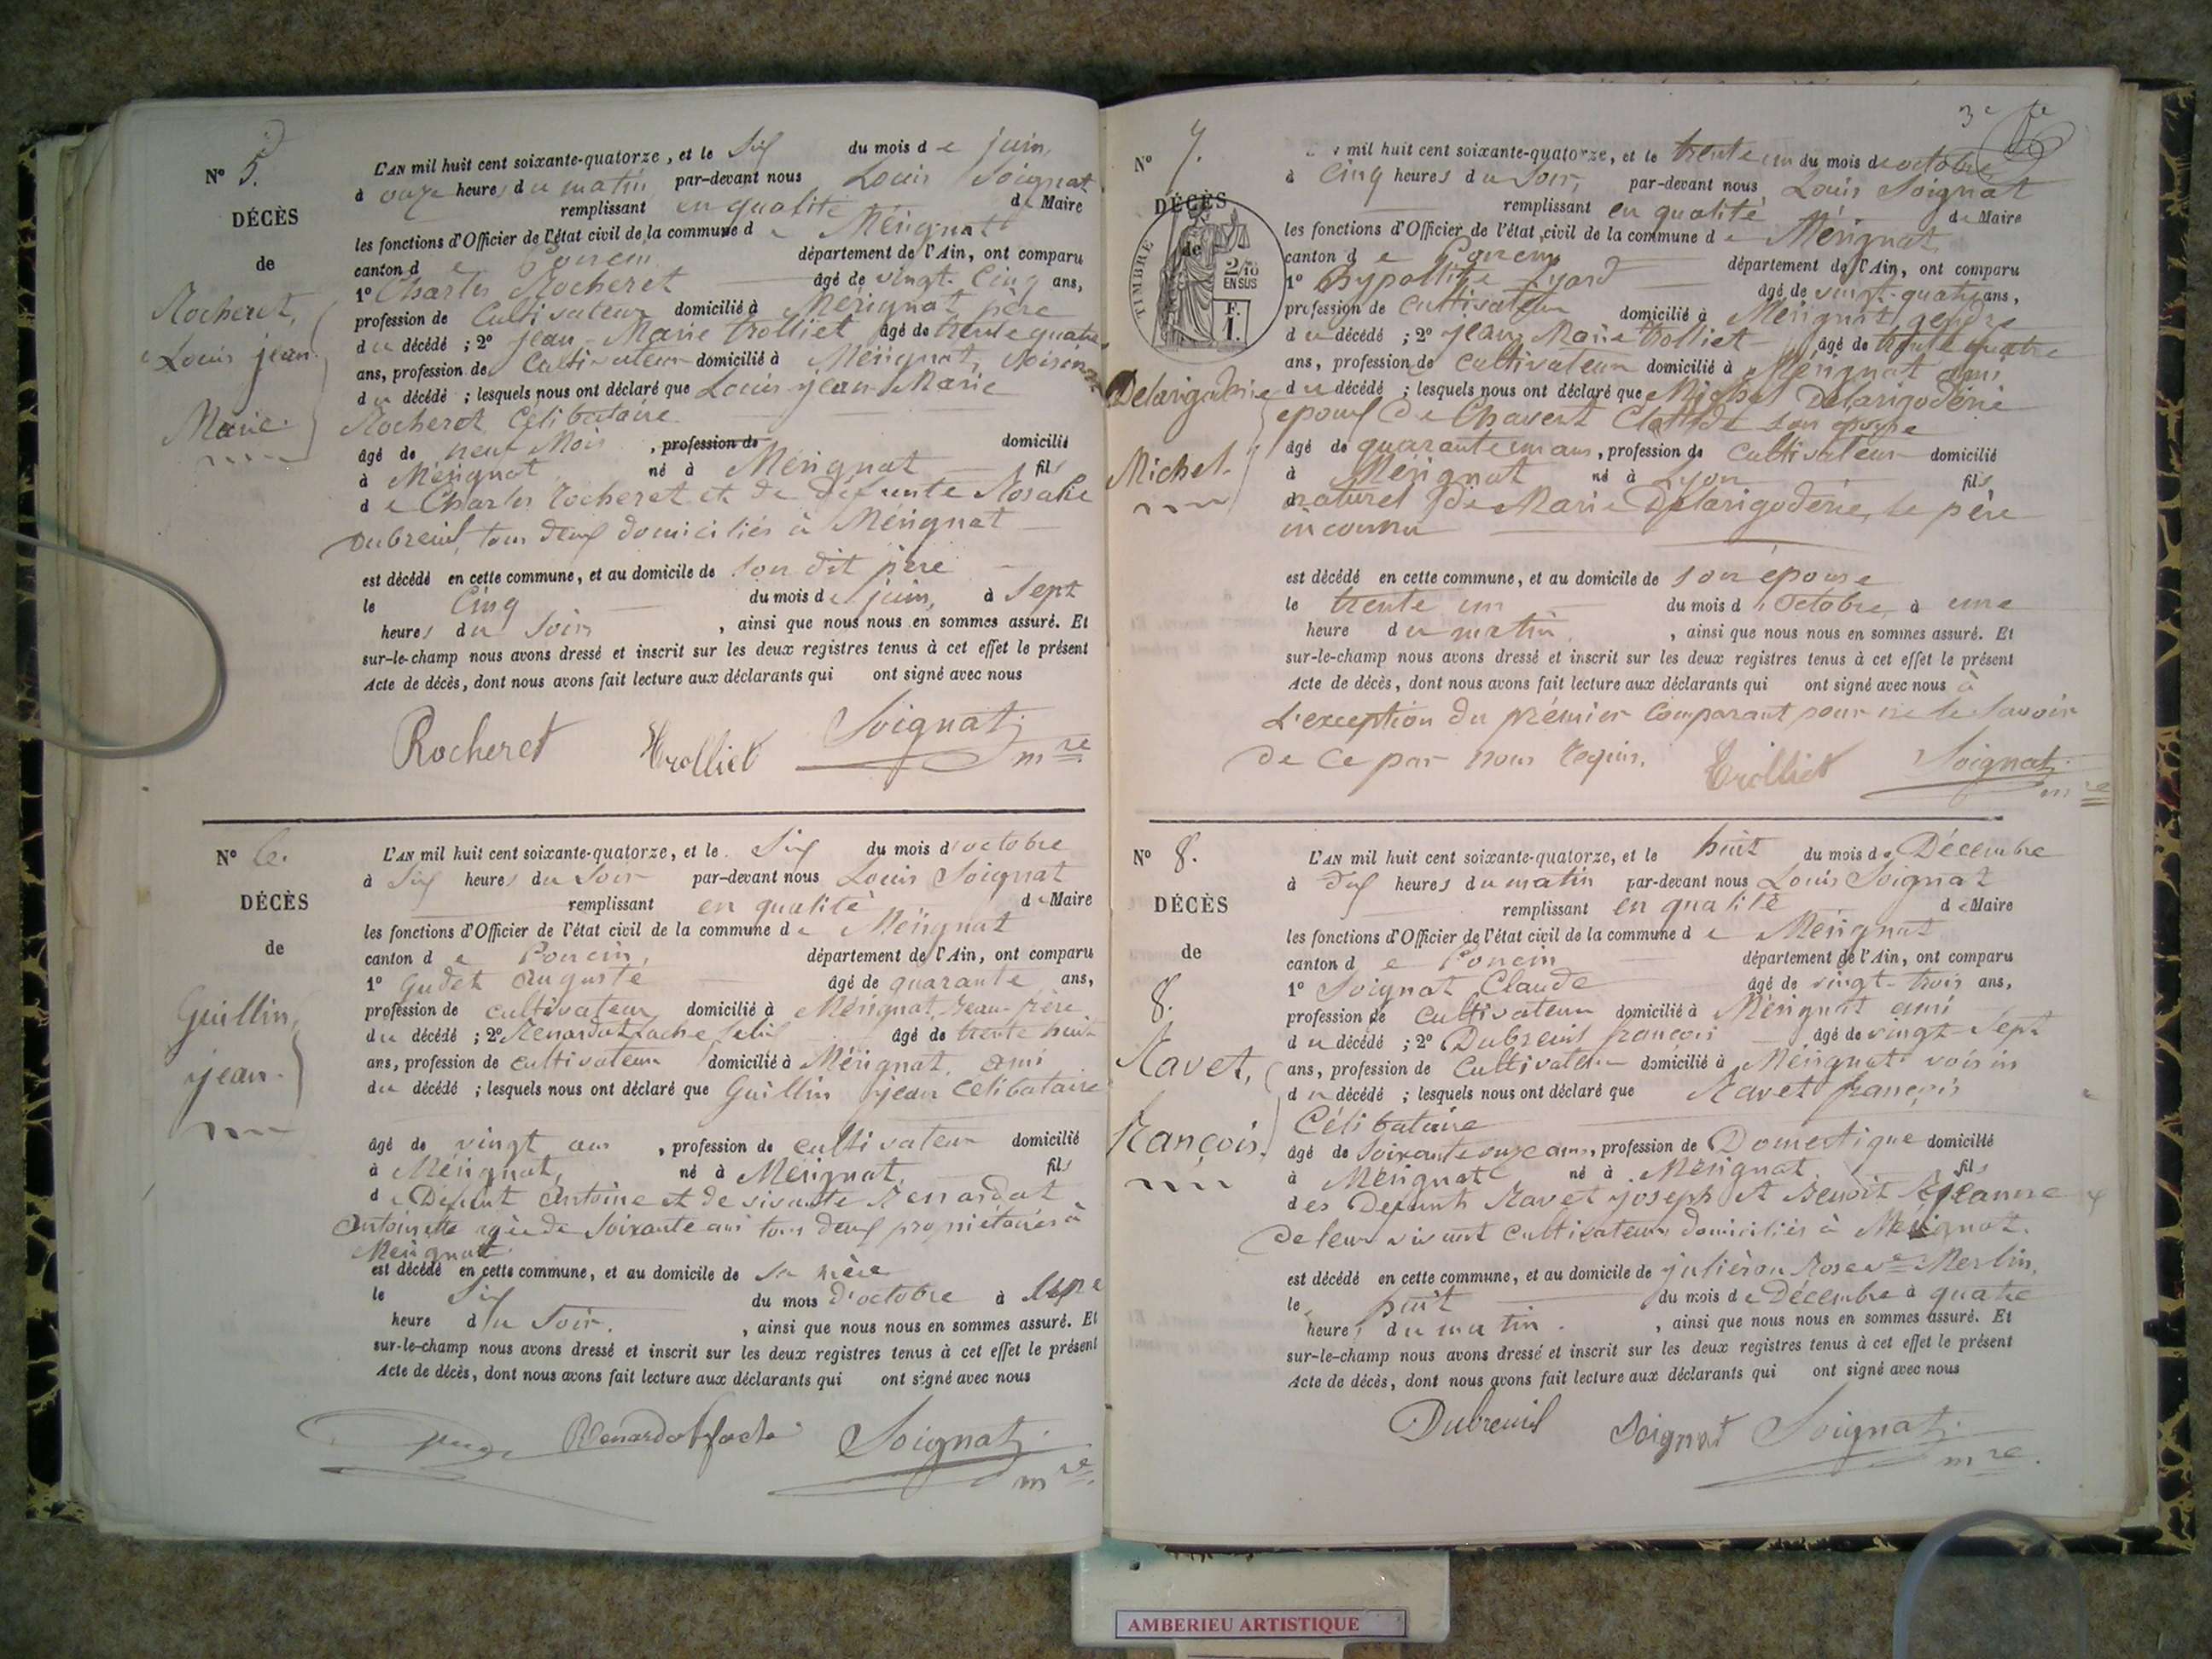 N° 5.
DÉCÈS
de
Rocheret,
Louis jean
Marie.
L'AN mil huit cent soixante-quatorze, et le Six du mois de juin,
à onze heures du matin par-devant nous Louis Soignat
remplissant en qualité de Maire
les fonctions d'Officier de l'état civil de la commune de Mérignat
canton de Poncin département de l'Ain, ont comparu
1° Charles Rocheret âgé de vingt-Cinq ans,
profession de Cultivateur domicilié à Mérignat père
du décédé ; 2° jean-Marie trolliet âgé de trente quatre
ans, profession de Cultivateur domicilié à Mérignat, Voisin
du décédé ; lesquels nous ont déclaré que Louis jean Marie
Rocheret Célibataire
âgé de neuf Mois , profession de domicilié
à Mérignat né à Mérignat fils
de Charles Rocheret et de défunte Rosalie
Dubreuil, tous deux domiciliés à Mérignat
est décédé en cette commune, et au domicile de son dit père
le Cinq du mois de juin, à Sept
heures du Soir , ainsi que nous nous en sommes assuré. Et
sur-le-champ nous avons dressé et inscrit sur les deux registres tenus à cet effet le présent
Acte de décès, dont nous avons fait lecture aux déclarants qui ont signé avec nous
Rocheret Trolliet Soignat
mre
N° 6.
DÉCÈS
de
Guillin,
jean.
L'AN mil huit cent soixante-quatorze, et le Six du mois d'octobre
à Six heures du Soir par-devant nous Louis Soignat
remplissant en qualité de Maire
les fonctions d'Officier de l'état civil de la commune de Mérignat
canton de Poncin, département de l'Ain, ont comparu
1° Gudet Auguste âgé de quarante ans,
profession de cultivateur domicilié à Mérignat, beau-frère
du décédé ; 2° Renardat âgé de trente huit
ans, profession de cultivateur domicilié à Mérignat, ami
du décédé ; lesquels nous ont déclaré que Guillin jean Célibataire
âgé de vingt ans , profession de cultivateur domicilié
à Mérignat, né à Mérignat, fils
de Défunt Antoine et de vivante Renardat
Antoinette agée de Soixante ans tous deux propriétaires à
Mérignat.
est décédé en cette commune, et au domicile de sa mère
le Six du mois d'octobre à une
heure du Soir. , ainsi que nous nous en sommes assuré. Et
sur-le-champ nous avons dressé et inscrit sur les deux registres tenus à cet effet le présent
Acte de décès, dont nous avons fait lecture aux déclarants qui ont signé avec nous
Soignat
mre
3e
N° 7.
DÉCÈS
de
TIMBRE
2/10
EN SUS
F.
1.
Delarigoderie
Michel.
mil huit cent soixante-quatorze, et le trente un du mois de octobre
à Cinq heures du Soir, par-devant nous Louis Soignat
remplissant en qualité de Maire
les fonctions d'Officier de l'état civil de la commune de Mérignat
canton de Poncin département de l'Ain, ont comparu
1° Hypollite âgé de vingt-quatre ans,
profession de Cultivateur domicilié à Mérignat, gendre
du décédé ; 2° jean Marie trolliet âgé de trente quatre
ans, profession de cultivateur domicilié à Mérignat ami
du décédé ; lesquels nous ont déclaré que Michel Delarigoderie
epoux de Chavent Clotilde son epouse
âgé de quarante un ans, profession de Cultivateur domicilié
à Mérignat né à Lyon fils
naturel de Marie Delarigoderie, le père
inconnu
est décédé en cette commune, et au domicile de son épouse
le trente un du mois d'Octobre, à une
heure du matin. , ainsi que nous nous en sommes assuré. Et
sur-le-champ nous avons dressé et inscrit sur les deux registres tenus à cet effet le présent
Acte de décès, dont nous avons fait lecture aux déclarants qui ont signé avec nous à
L'exception du prémier Comparant pour ne le Savoir
de Ce par nous requis. Trolliet Soignat
mre
N° 8.
DÉCÈS
de
8.
Ravet,
François.
L'AN mil huit cent soixante-quatorze, et le huit du mois de Décembre
à dix heures du matin par-devant nous Louis Soignat
remplissant en qualité de Maire
les fonctions d'Officier de l'état civil de la commune de Mérignat
canton de Poncin département de l'Ain, ont comparu
1° Soignat Claude âgé de vingt-trois ans,
profession de cultivateur domicilié à Mérignat ami
du décédé ; 2° Dubreuil françois âgé de vingt-Sept
ans, profession de Cultivateur domicilié à Mérignat voisin
du décédé ; lesquels nous ont déclaré que Ravet françois
Célibataire
âgé de Soixante onze ans, profession de Domestique domicilié
à Mérignat né à Mérignat fils
des Défunts Ravet joseph et Benoit jeanne
de leur vivant cultivateurs domiciliés à Mérignat.
est décédé en cette commune, et au domicile de julièron Rose ve Merlin,
le, huit du mois de Décembre à quatre
heures du matin. , ainsi que nous nous en sommes assuré. Et
sur-le-champ nous avons dressé et inscrit sur les deux registres tenus à cet effet le présent
Acte de décès, dont nous avons fait lecture aux déclarants qui ont signé avec nous
Dubreuil Soignat Soignat
mre.
AMBERIEU ARTISTIQUE